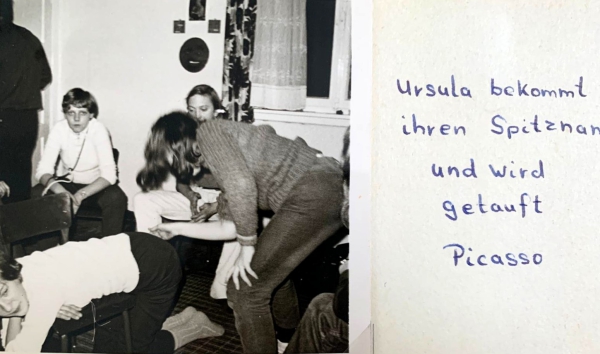 Ursula bekommt
ihren Spitznam
und wird
getauft
Picasso